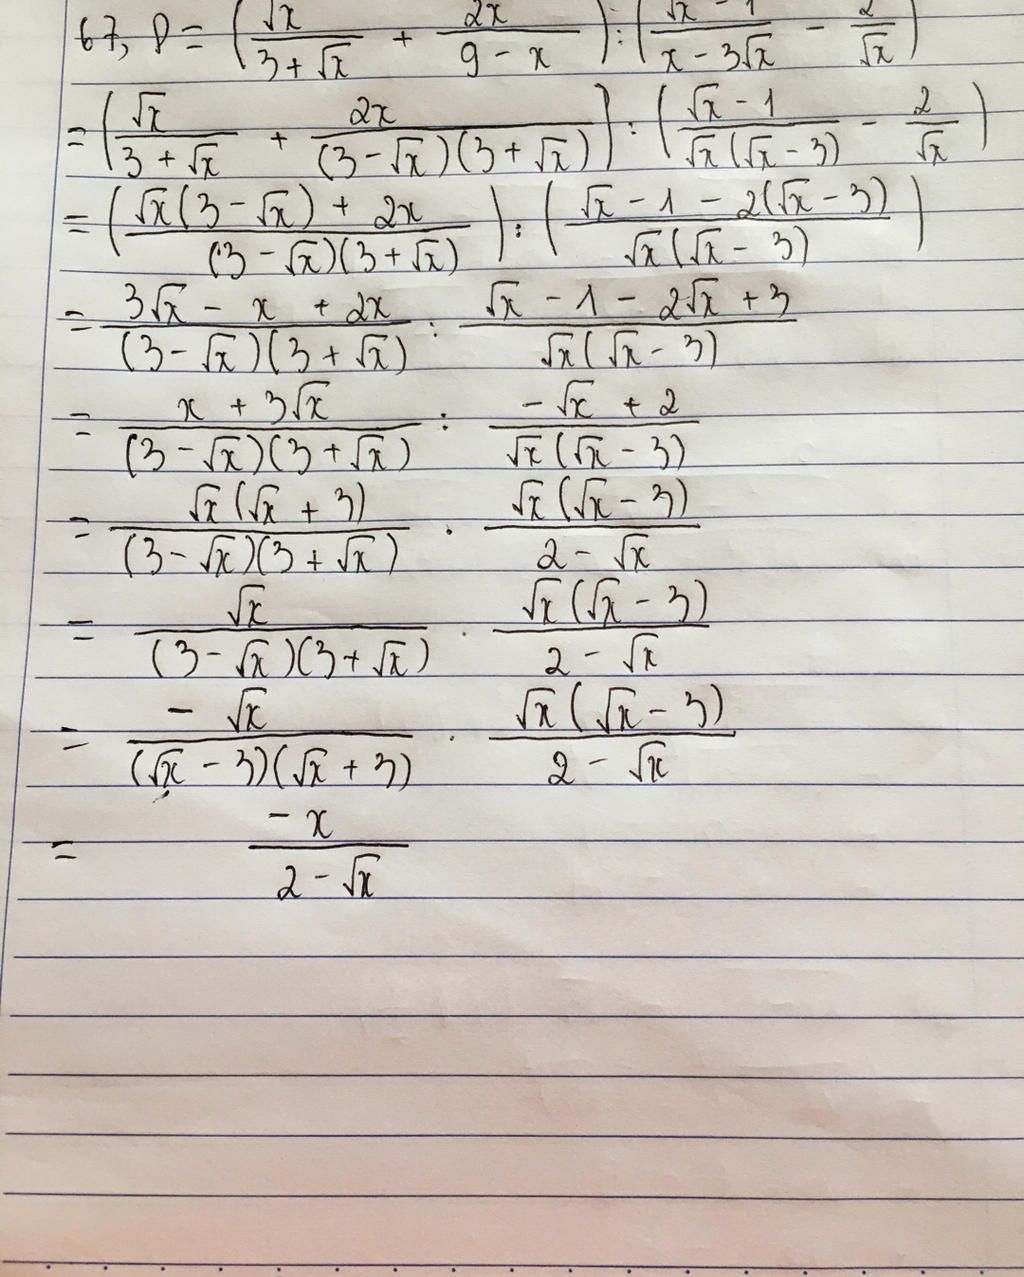 67, P = (√x/(3+√x) + 2x/(9-x)) : ((√x-1)/(x-3√x) - 2/√x)
= (√x/(3+√x) + 2x/((3-√x)(3+√x))] : ((√x-1)/(√x(√x-3)) - 2/√x)
= ((√x(3-√x) + 2x)/((3-√x)(3+√x))) : ((√x-1-2(√x-3))/(√x(√x-3)))
= (3√x - x + 2x)/((3-√x)(3+√x)) : (√x-1-2√x+3)/(√x(√x-3))
= (x+3√x)/((3-√x)(3+√x)) : (-√x+2)/(√x(√x-3))
= √x(√x+3)/((3-√x)(3+√x)) . √x(√x-3)/(2-√x)
= √x/((3-√x)(3+√x)) . √x(√x-3)/(2-√x)
= -√x/((√x-3)(√x+3)) . √x(√x-3)/(2-√x)
= -x/(2-√x)